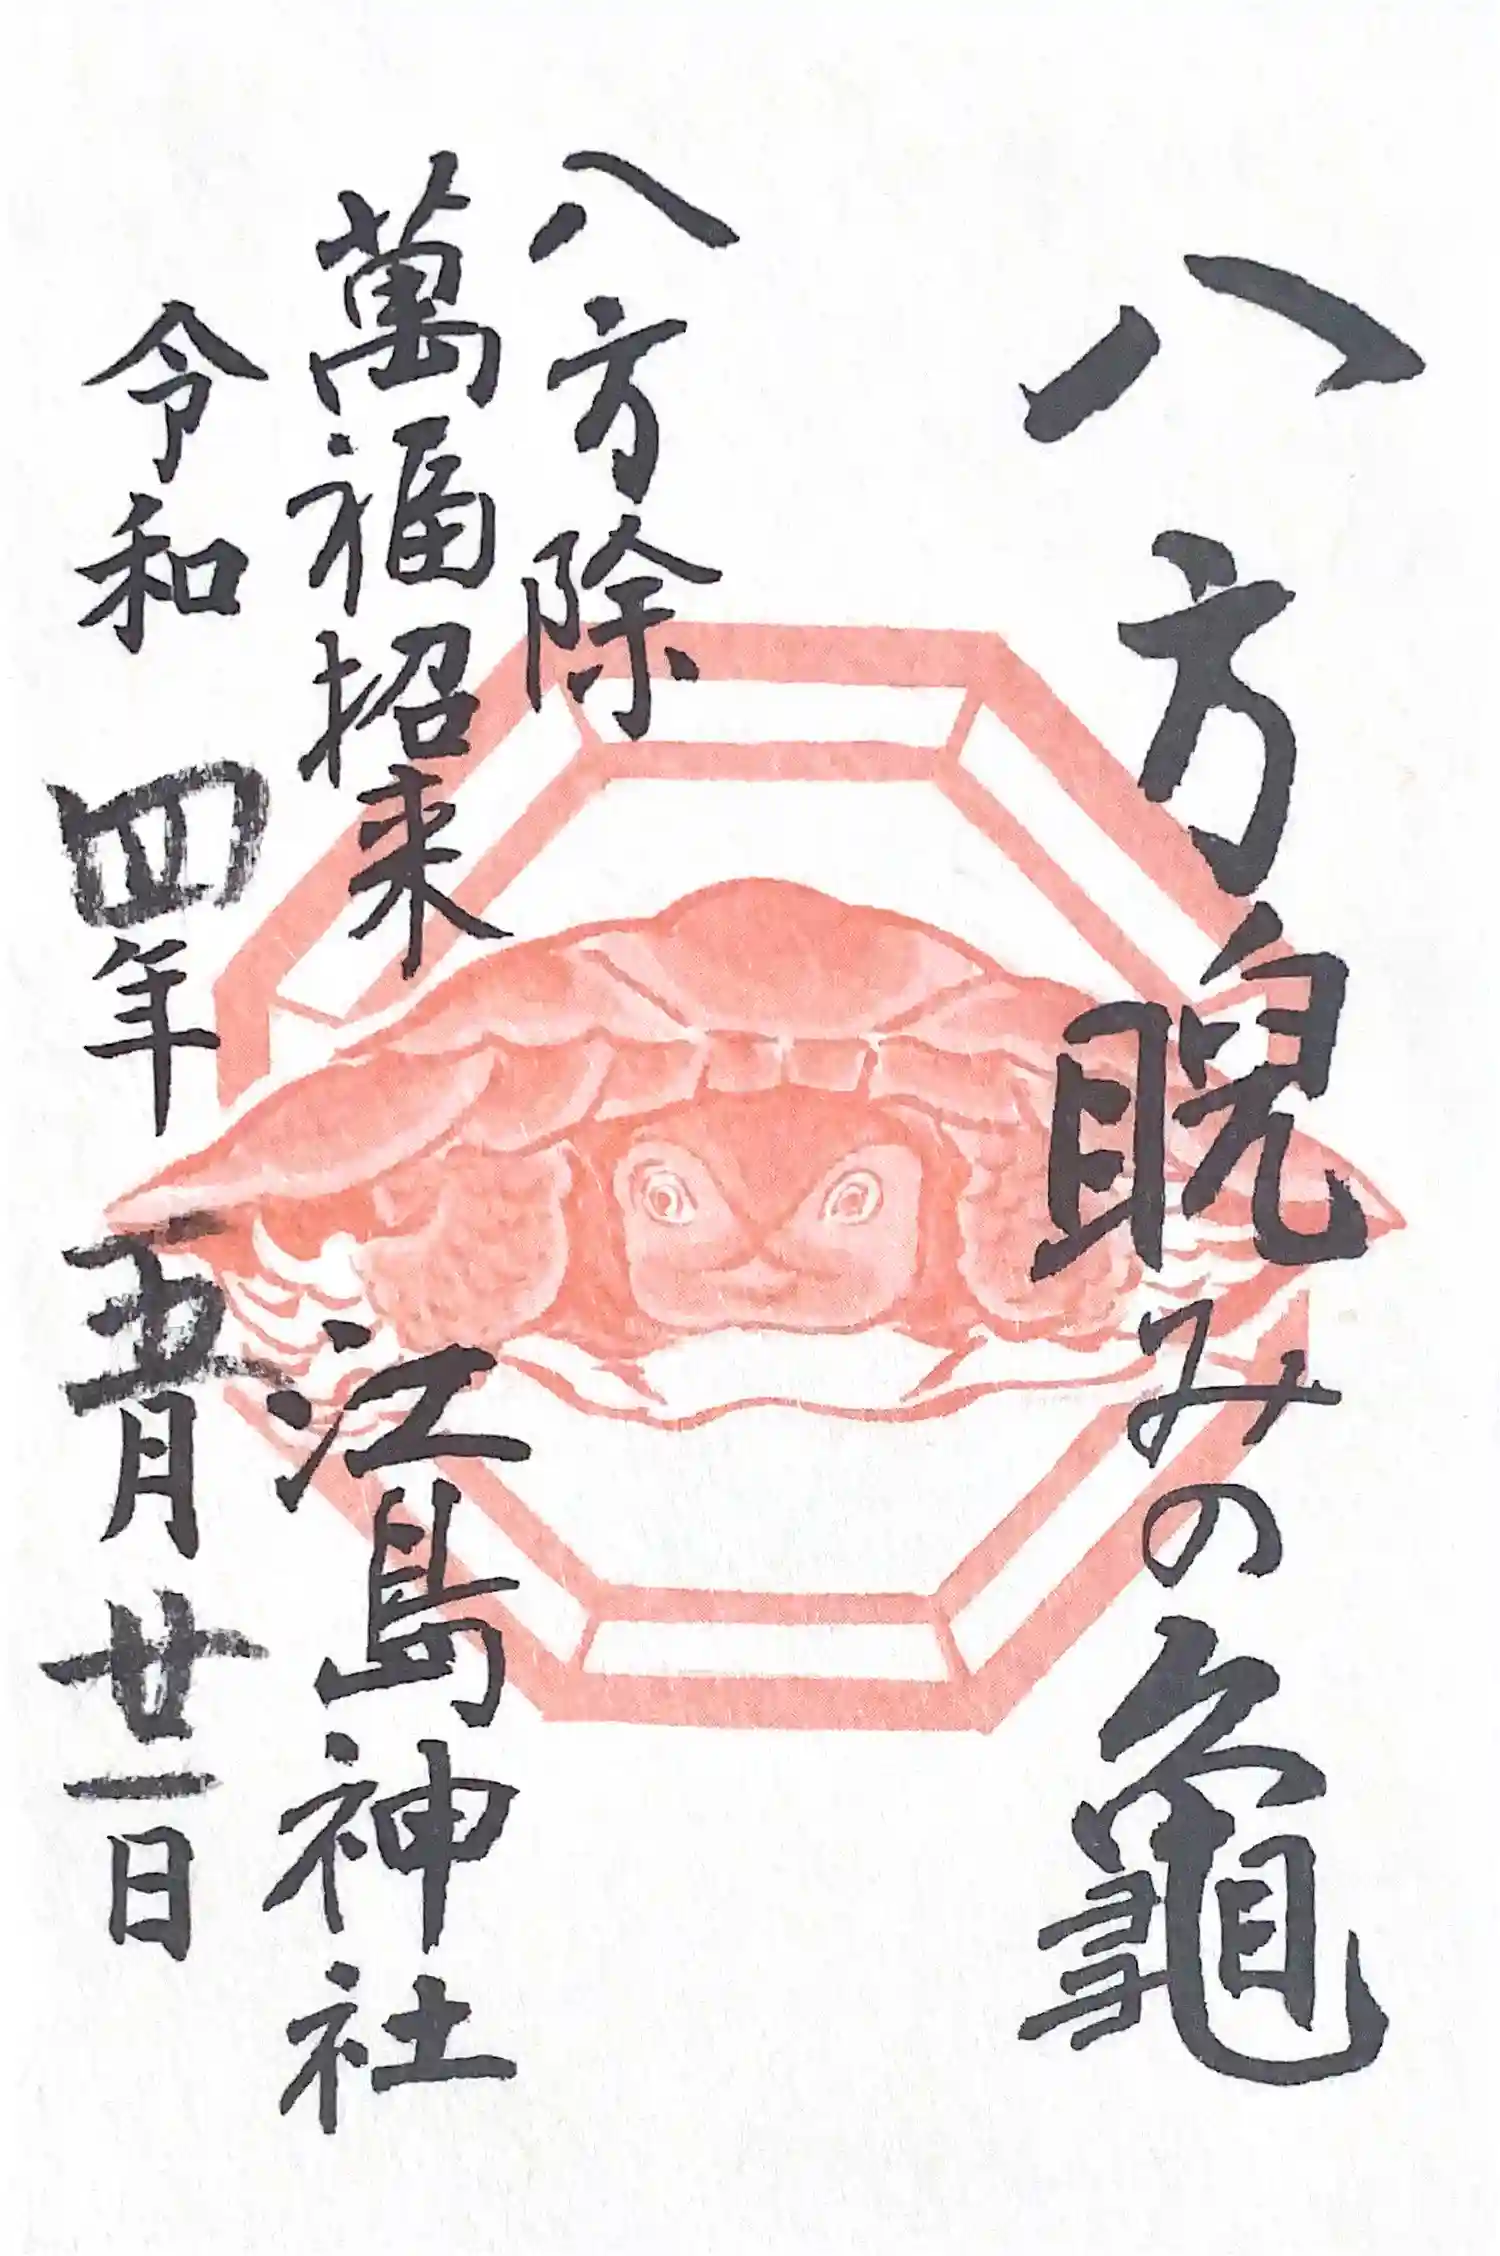 八方睨みの龜
八方除
萬福招来
江島神社
令和四年五月廿一日